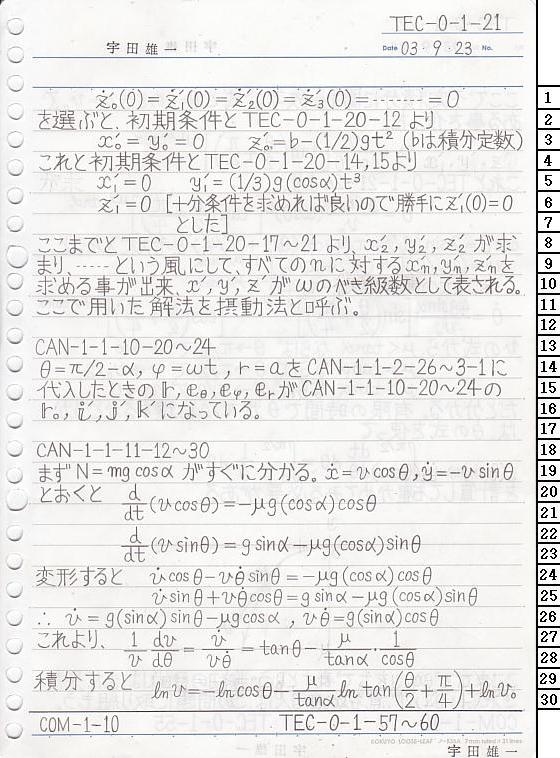 TEC-0-1-21
宇田雄一
Date 03・9・23 No.
ż′₀(0)=ż′₁(0)=ż′₂(0)=ż′₃(0)=--------=0
を選ぶと、初期条件とTEC-0-1-20-12より
x′₀=y′₀=0 z′₀=b-(1/2)gt² (bは積分定数)
これと初期条件とTEC-0-1-20-14,15より
x′₁=0 y′₁=(1/3)g(cosα)t³
z′₁=0 [十分条件を求めれば良いので勝手にż′₁(0)=0
とした]
ここまでとTEC-0-1-20-17〜21より、x′₂,y′₂,z′₂が求
まり、-----という風にして、すべてのnに対するx′ₙ,y′ₙ,z′ₙを
求める事が出来、x′,y′,z′がωのべき級数として表される。
ここで用いた解法を摂動法と呼ぶ。
CAN-1-1-10-20〜24
θ=π/2-α, φ=ωt, r=aをCAN-1-1-2-26〜3-1に
代入したときの𝕣,𝕖θ,𝕖φ,𝕖rがCAN-1-1-10-20〜24の
𝕣₀,𝕚′,𝕛′,𝕜′になっている。
CAN-1-1-11-12〜30
まずN=mg cosαがすぐに分かる。ẋ=v cosθ,ẏ=-v sinθ
とおくと d/dt(v cosθ)=-μg(cosα)cosθ
d/dt(v sinθ)=g sinα-μg(cosα)sinθ
変形すると v̇ cosθ-vθ̇ sinθ=-μg(cosα)cosθ
v̇ sinθ+vθ̇ cosθ=g sinα-μg(cosα)sinθ
∴ v̇=g(sinα)sinθ-μg cosα, vθ̇=g(sinα)cosθ
これより、1/v dv/dθ=v̇/vθ̇=tanθ-μ/tanα・1/cosθ
積分すると ln v=-ln cosθ-μ/tanα ln tan(θ/2+π/4)+ln v₀
COM-1-10 TEC-0-1-57〜60
KOKUYO LOOSE-LEAF ノ-836A 7mm ruled x 31 lines
宇田雄一
1
2
3
4
5
6
7
8
9
10
11
12
13
14
15
16
17
18
19
20
21
22
23
24
25
26
27
28
29
30